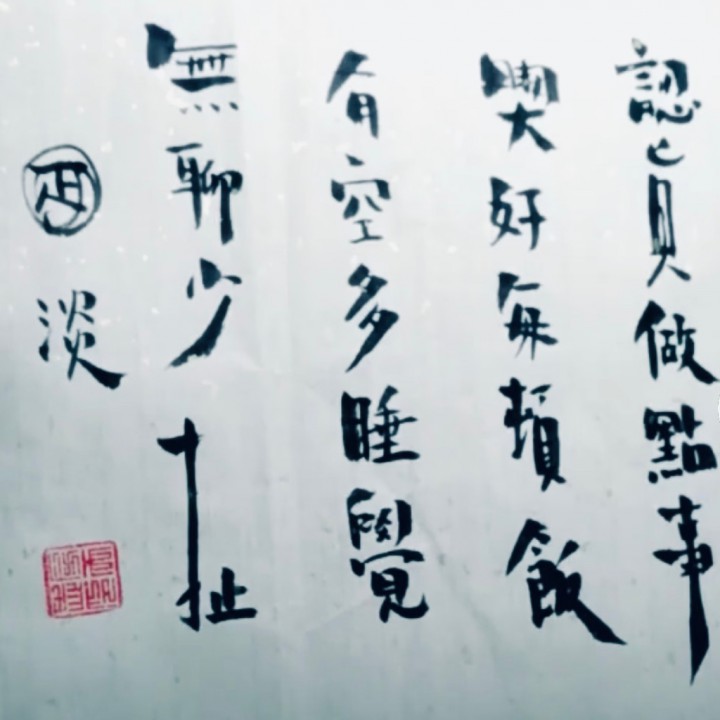 認真做點事
喫好每頓飯
有空多睡覺
無聊少扯
淡